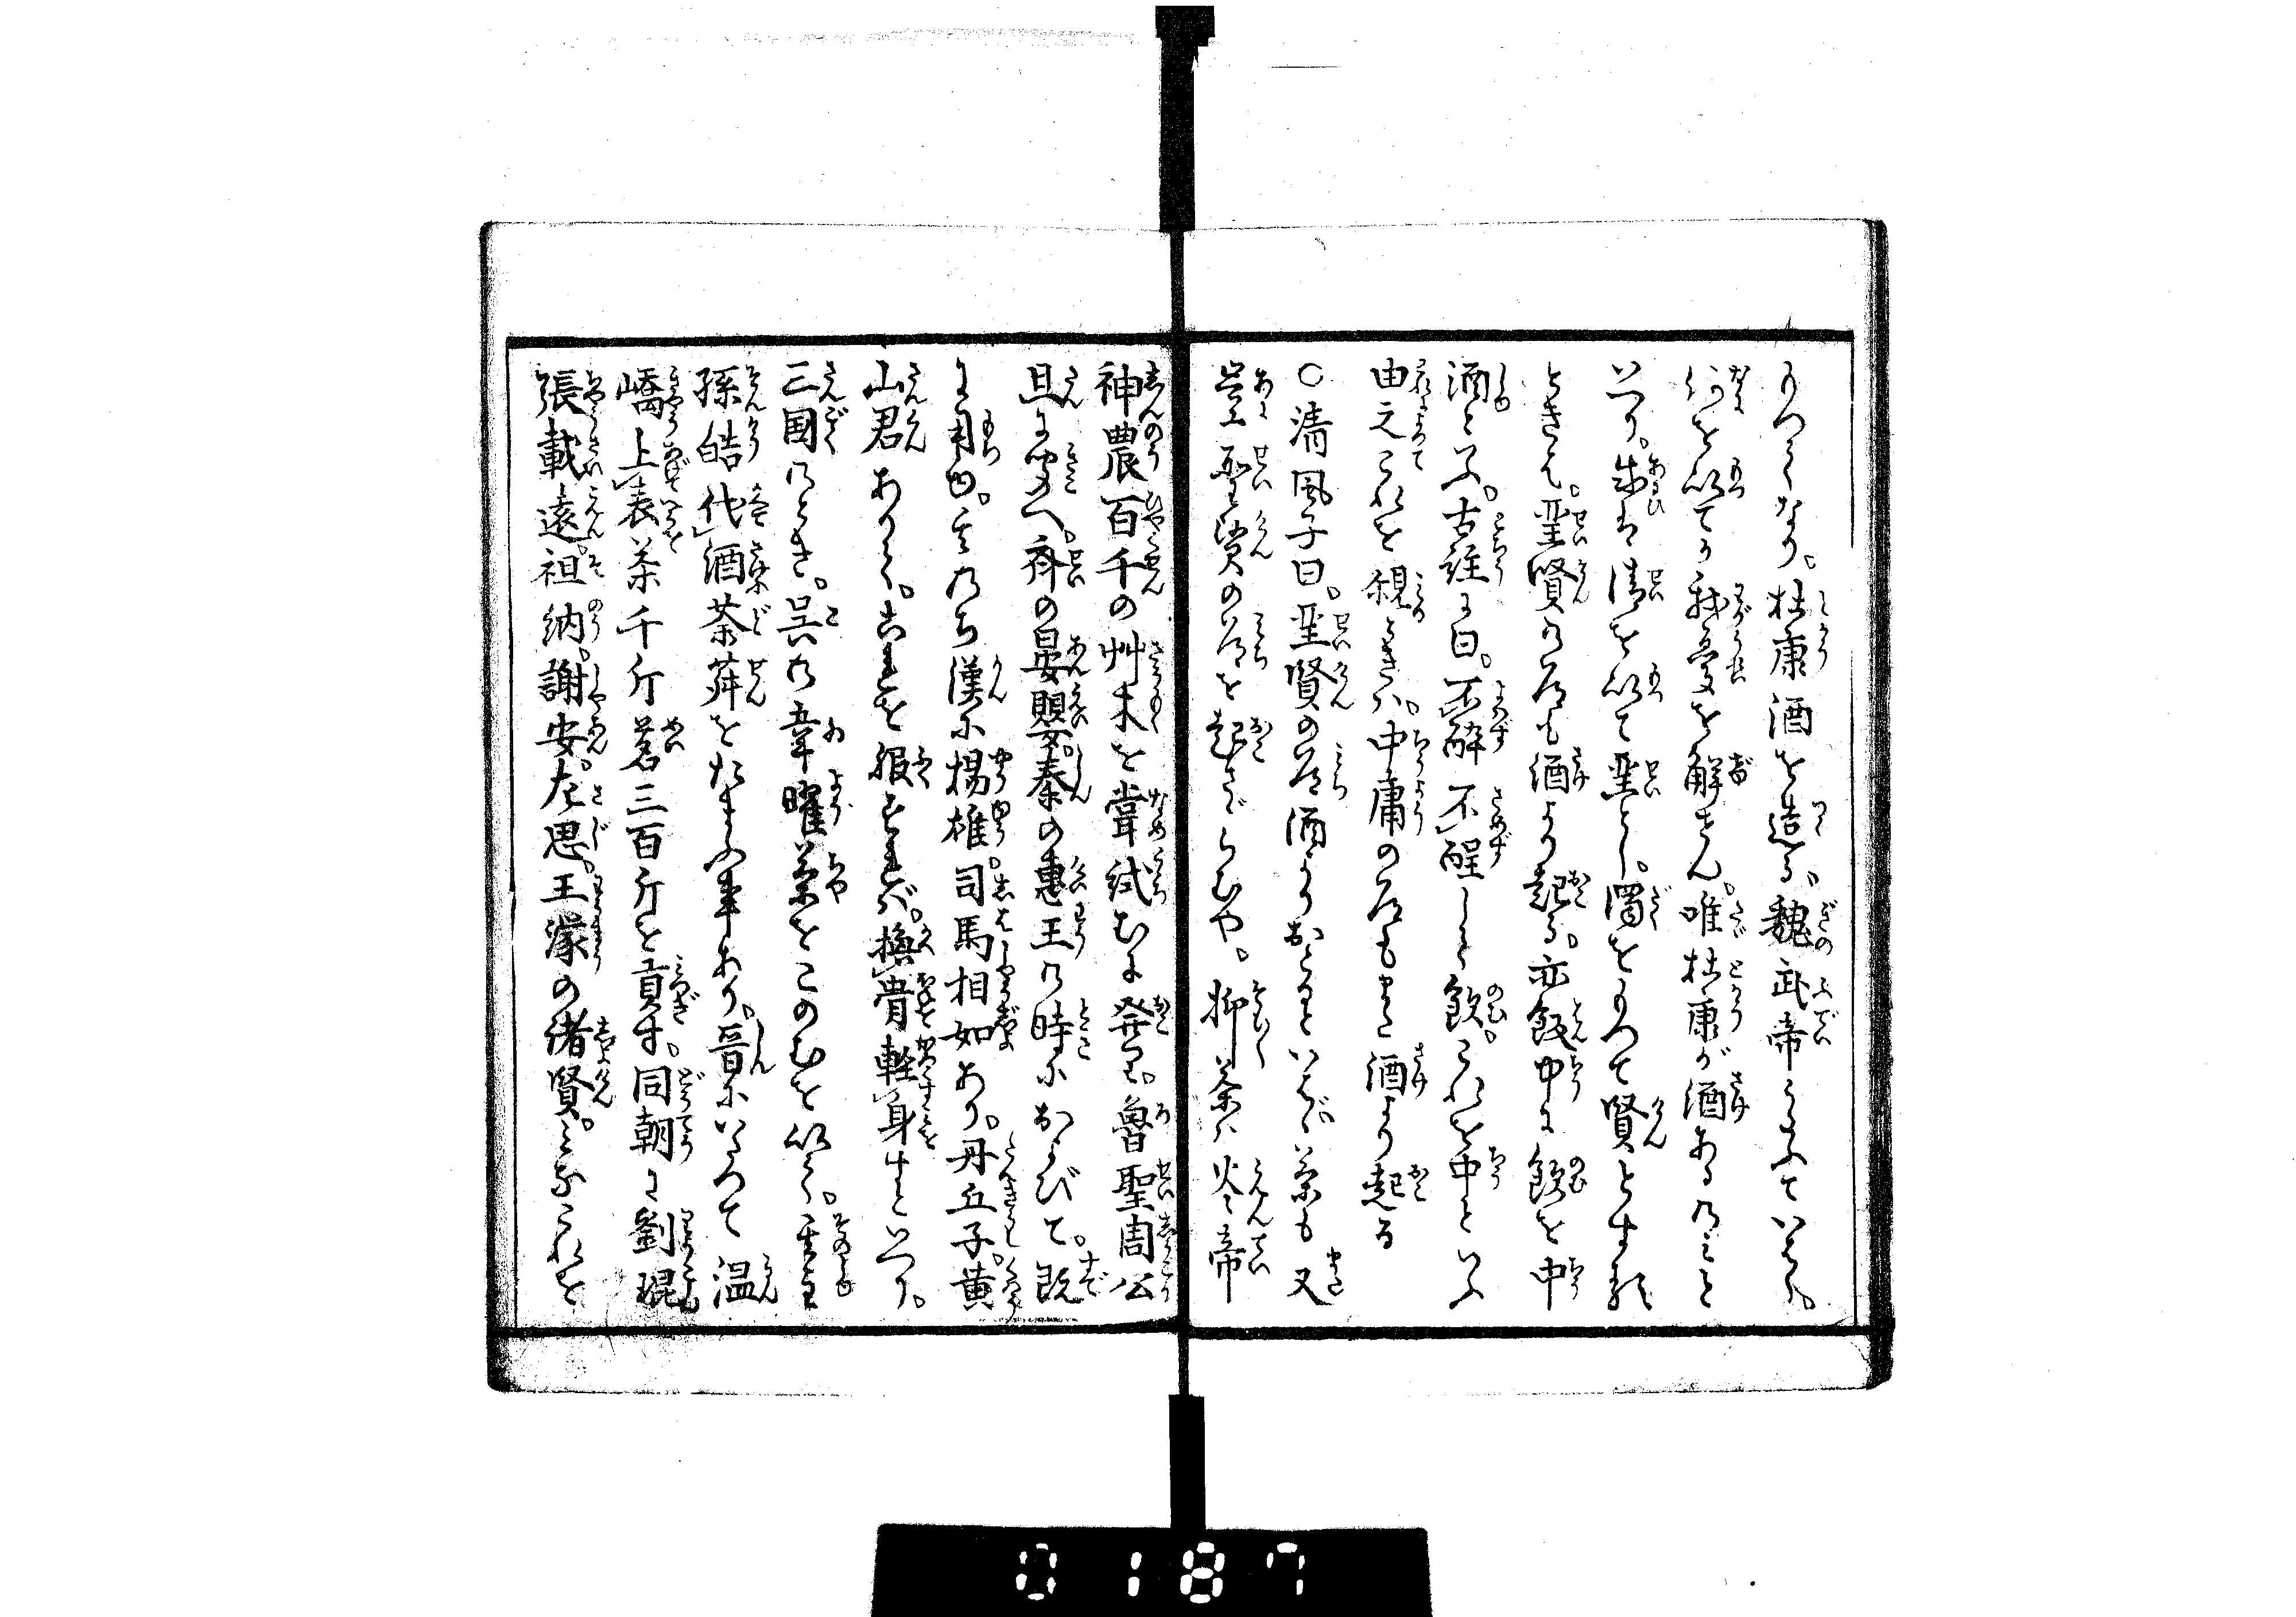 のつくなり。杜康酒を造る。魏武帝うたふていはく。
何を以てか我憂を解せん。唯杜康が酒あるのみと
いへり。或は清を以て聖とし。濁をもつて賢とす
ときは。聖賢の道も酒より起る。亦飯中に飲を中
酒といふ。古註に曰。不酔不醒して飲。これを中といふ
由之これを観ときハ。中庸の道もまた酒より起る
○清風子曰。聖賢の道酒よりおこるといはゞ茶も又
豈聖賢の道を起さゞらむや。抑茶ハ炎帝
神農百千の艸木を嘗試むに発り。魯聖周公
旦に聞へ。斉の晏嬰。秦の恵王の時におよびて。既
に用ゆ。其のち漢に揚雄。司馬相如あり。丹丘子。黄
山君あり。これを服すれば。換骨軽身すといへり。
三国のとき。呉の韋曜茶をこのむを以て。其主
孫皓代酒茶荈をたまふ事あり。晋にいたつて温
嶠上表茶千斤茗三百斤を貢す。同朝に劉琨
張載遠祖納。謝安。左思。王濛の諸賢。みなこれを
0187